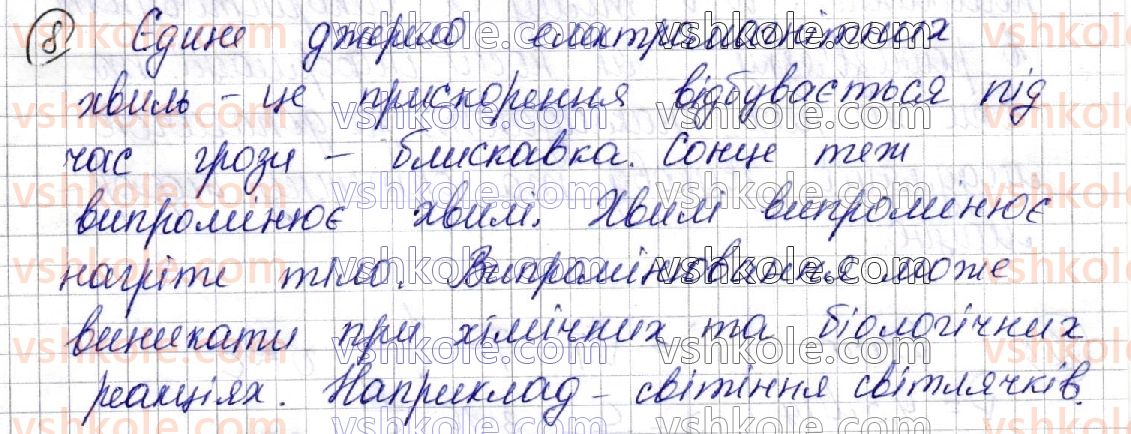 8 Єдине джерело електромагнітних
хвиль - це прискорення відбувається під
час грози - блискавка. Сонце теж
випромінює хвилі. Хвилі випромінює
нагріте тіло. Випромінювання може
виникати при хімічних та біологічних
реакціях. Наприклад - світіння світлячків.
vshkole.com